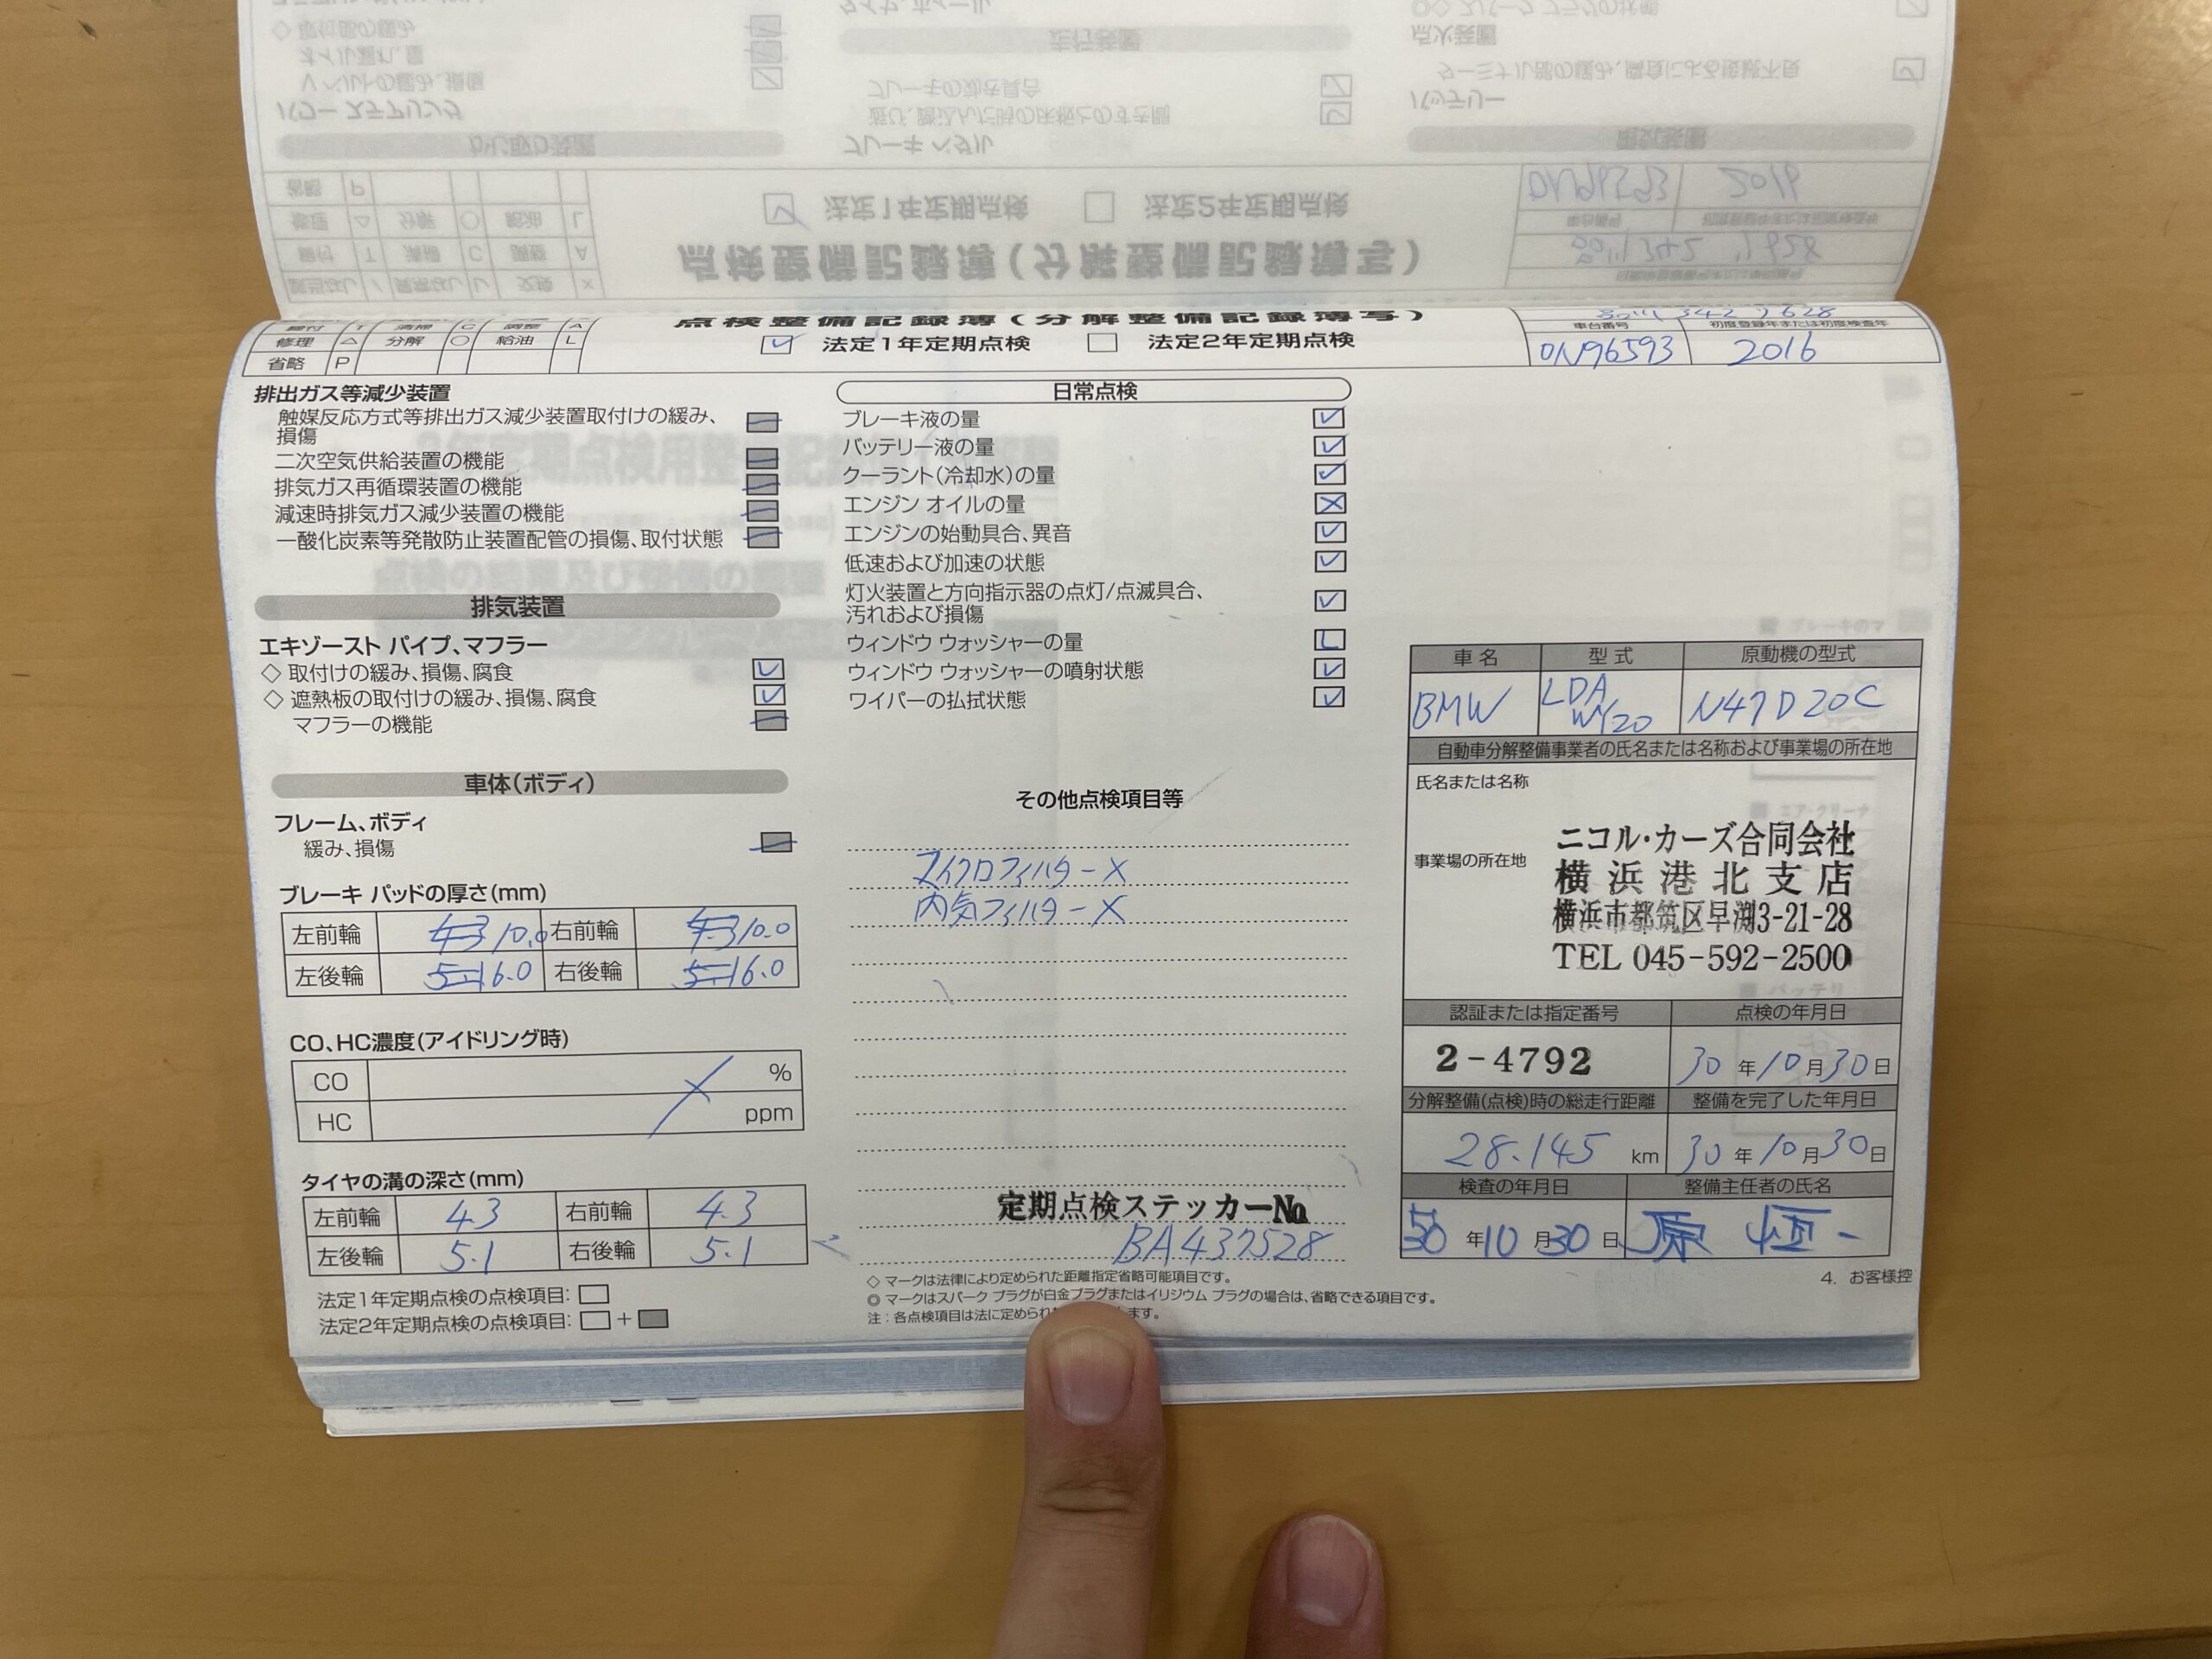 締付 T 清掃 C 調整 A
修理 △ 分解 ○ 給油 L
省略 P
点検整備記録簿(分解整備記録簿写)
法定1年定期点検 法定2年定期点検
車台番号 初度登録年または初度検査年
0N96593 2016
排出ガス等減少装置
触媒反応方式等排出ガス減少装置取付けの緩み、
損傷
二次空気供給装置の機能
排気ガス再循環装置の機能
減速時排気ガス減少装置の機能
一酸化炭素等発散防止装置配管の損傷、取付状態
排気装置
エキゾースト パイプ、マフラー
◇ 取付けの緩み、損傷、腐食
◇ 遮熱板の取付けの緩み、損傷、腐食
マフラーの機能
車体(ボディ)
フレーム、ボディ
緩み、損傷
ブレーキ パッドの厚さ(mm)
左前輪 4.3 10.0 右前輪 4.3 10.0
左後輪 5.1 6.0 右後輪 5.1 6.0
CO、HC濃度(アイドリング時)
CO %
HC ppm
タイヤの溝の深さ(mm)
左前輪 4.3 右前輪 4.3
左後輪 5.1 右後輪 5.1
法定1年定期点検の点検項目:
法定2年定期点検の点検項目: +
日常点検
ブレーキ液の量
バッテリー液の量
クーラント(冷却水)の量
エンジン オイルの量
エンジンの始動具合、異音
低速および加速の状態
灯火装置と方向指示器の点灯/点滅具合、
汚れおよび損傷
ウィンドウ ウォッシャーの量
ウィンドウ ウォッシャーの噴射状態
ワイパーの払拭状態
その他点検項目等
マイクロフィルター X
内気フィルター X
定期点検ステッカーNo.
BA437528
◇ マークは法律により定められた距離指定省略可能項目です。
◎ マークはスパーク プラグが白金プラグまたはイリジウム プラグの場合は、省略できる項目です。
注:各点検項目は法に定められ ます。
車名 型式 原動機の型式
BMW LDA WY20 N47D20C
自動車分解整備事業者の氏名または名称および事業場の所在地
氏名または名称
ニコル・カーズ合同会社
事業場の所在地
横浜港北支店
横浜市都筑区早渕3-21-28
TEL 045-592-2500
認証または指定番号 点検の年月日
2-4792 30年10月30日
分解整備(点検)時の総走行距離 整備を完了した年月日
28.145 km 30年10月30日
検査の年月日 整備主任者の氏名
30年10月30日 原 恒一
4. お客様控